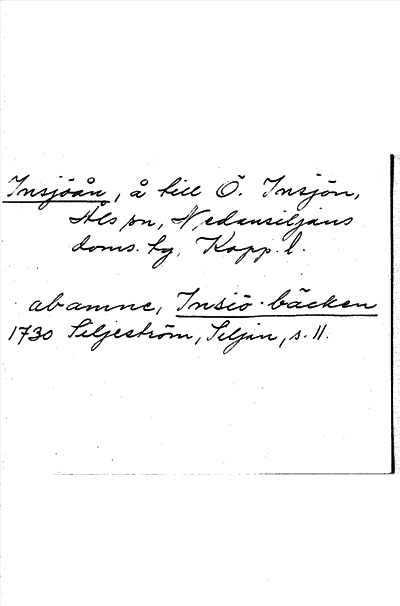 Insjöån, å till Ö. Insjön,
Åls sn, Nedansiljans
doms. tg, Kopp. l.
ab amne, Insiö-bäcken
1730 Siljeström, Siljan, s. 11.